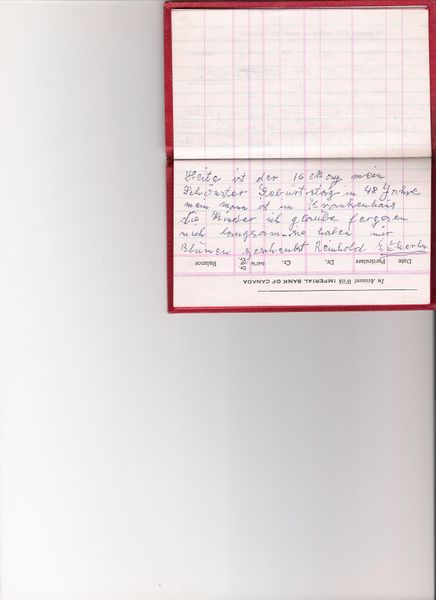 Heite ist der 16 May mein
Schönster Geburtstag in 48 Jahre
mein mann ist im Krankenhaus
die Kinder ich glaube fergesen
mich langsam sie haben mir
Blumen geschenkt Reinhold
In Account With IMPERIAL BANK OF CANADA
Date Particulars Dr. Cr. Balance